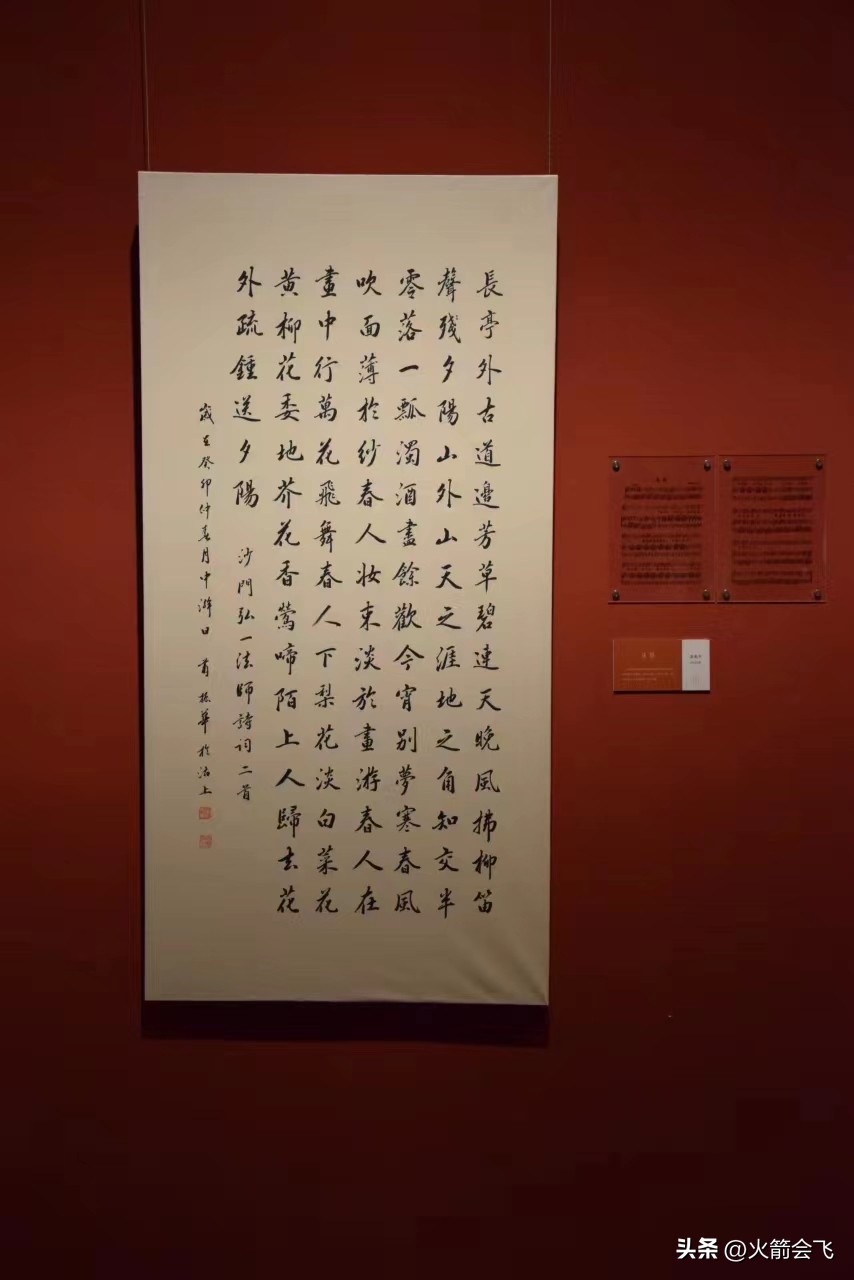 長亭外古道邊芳草碧連天晚風拂柳笛
聲殘夕陽山外山天之涯地之角知交半
零落一瓢濁酒盡餘歡今宵別夢寒春風
吹面薄於紗春人妝束淡於畫游春人在
畫中行萬花飛舞春人下梨花淡白菜花
黄柳花委地芥花香鶯啼陌上人歸去花
外疏鍾送夕陽
沙門弘一法師詩詞二首
歲在癸卯仲春月中澣日
頭条 @火箭会飞